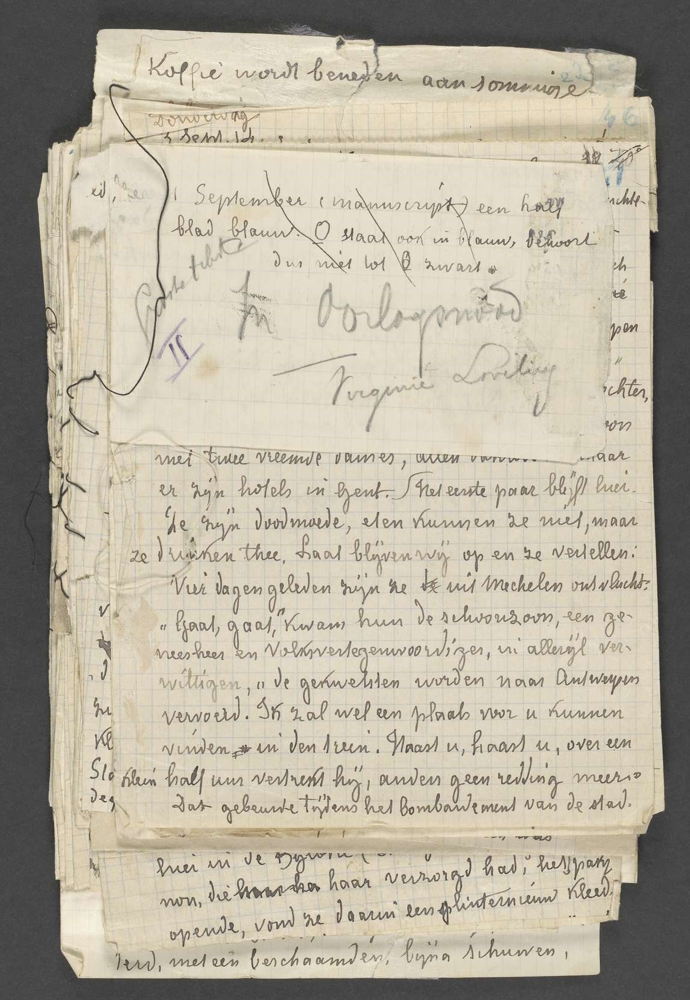 Koffie wordt beneden aan sommige
46
donderdag
3 Sept. 14.
1 September (manuscript) een half
blad blauw. O staat ook in blauw, behoort
dus niet tot O zwart.
Eerste tekst
II
In Oorlogsnood
Virginie Loveling
met twee vreemde dames, allen
er zijn hotels in Gent. Het eerste paar blijft hier.
Ze zijn doodmoede, eten kunnen ze niet, maar
ze drinken thee. Laat blijven wij op en ze vertellen:
Vier dagen geleden zijn ze uit Mechelen ontvlucht.
"Gaat, gaat," kwam hun de schoonzoon, een ge-
neesheer en Volksvertegenwoordiger, in allerijl ver-
wittigen, "de gekwetsten worden naar Antwerpen
vervoerd. Ik zal wel een plaats voor u kunnen
vinden in den trein. Haast u, haast u, over een
klein half uur vertrekt hij, anders geen redding meer."
Dat gebeurde tijdens het bombardement van de stad.
hier in de
non, die haar verzorgd had, het pak
opende, vond ze daarin een splinternieuw kleed,
met een beschaamden, bijna schuwen,